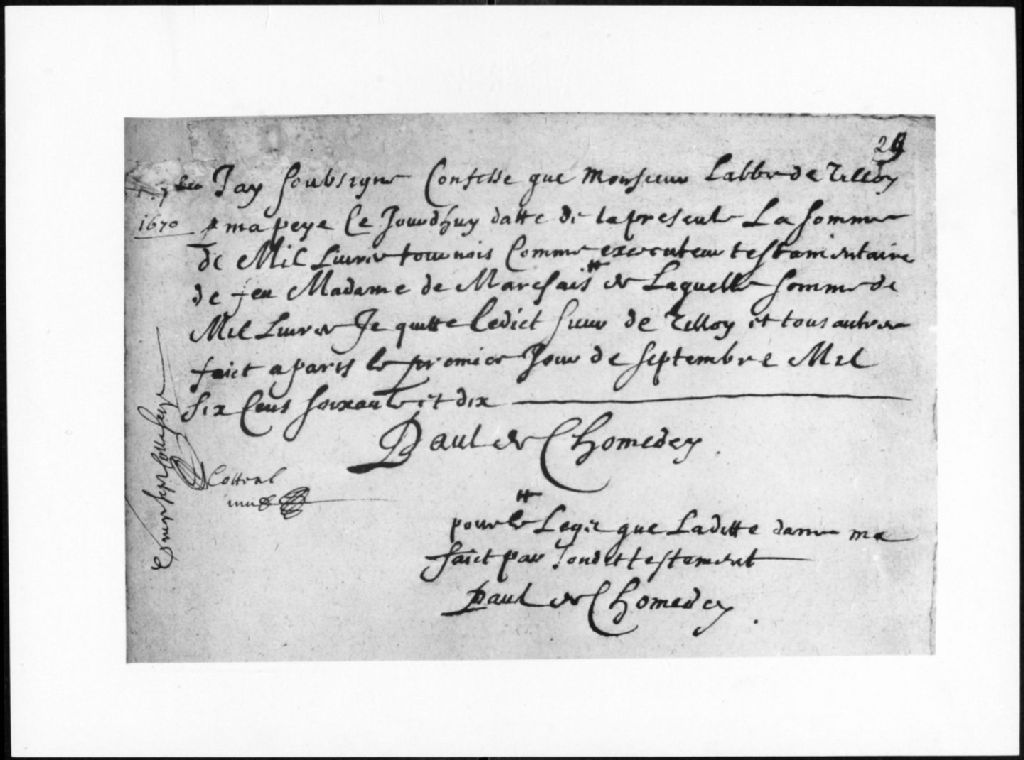 29
1670
Jay soubsigne Confesse que Monsieur Labbe de Tilloy
ma peye Ce Jourdhuy datte de la presente La somme
de Mil Livres tournois Comme executeur testamentaire
de feu Madame de Marcsais # de Laquelle somme de
Mil Livres Je quitte ledict sieur de Tilloy et tous autres
faict a paris le premier Jour de septembre Mil
six Cens soixante et dix
Paul de Chomedey
#
pour le Legir que Laditte dame ma
faict par sondit testement
Paul de Chomedey